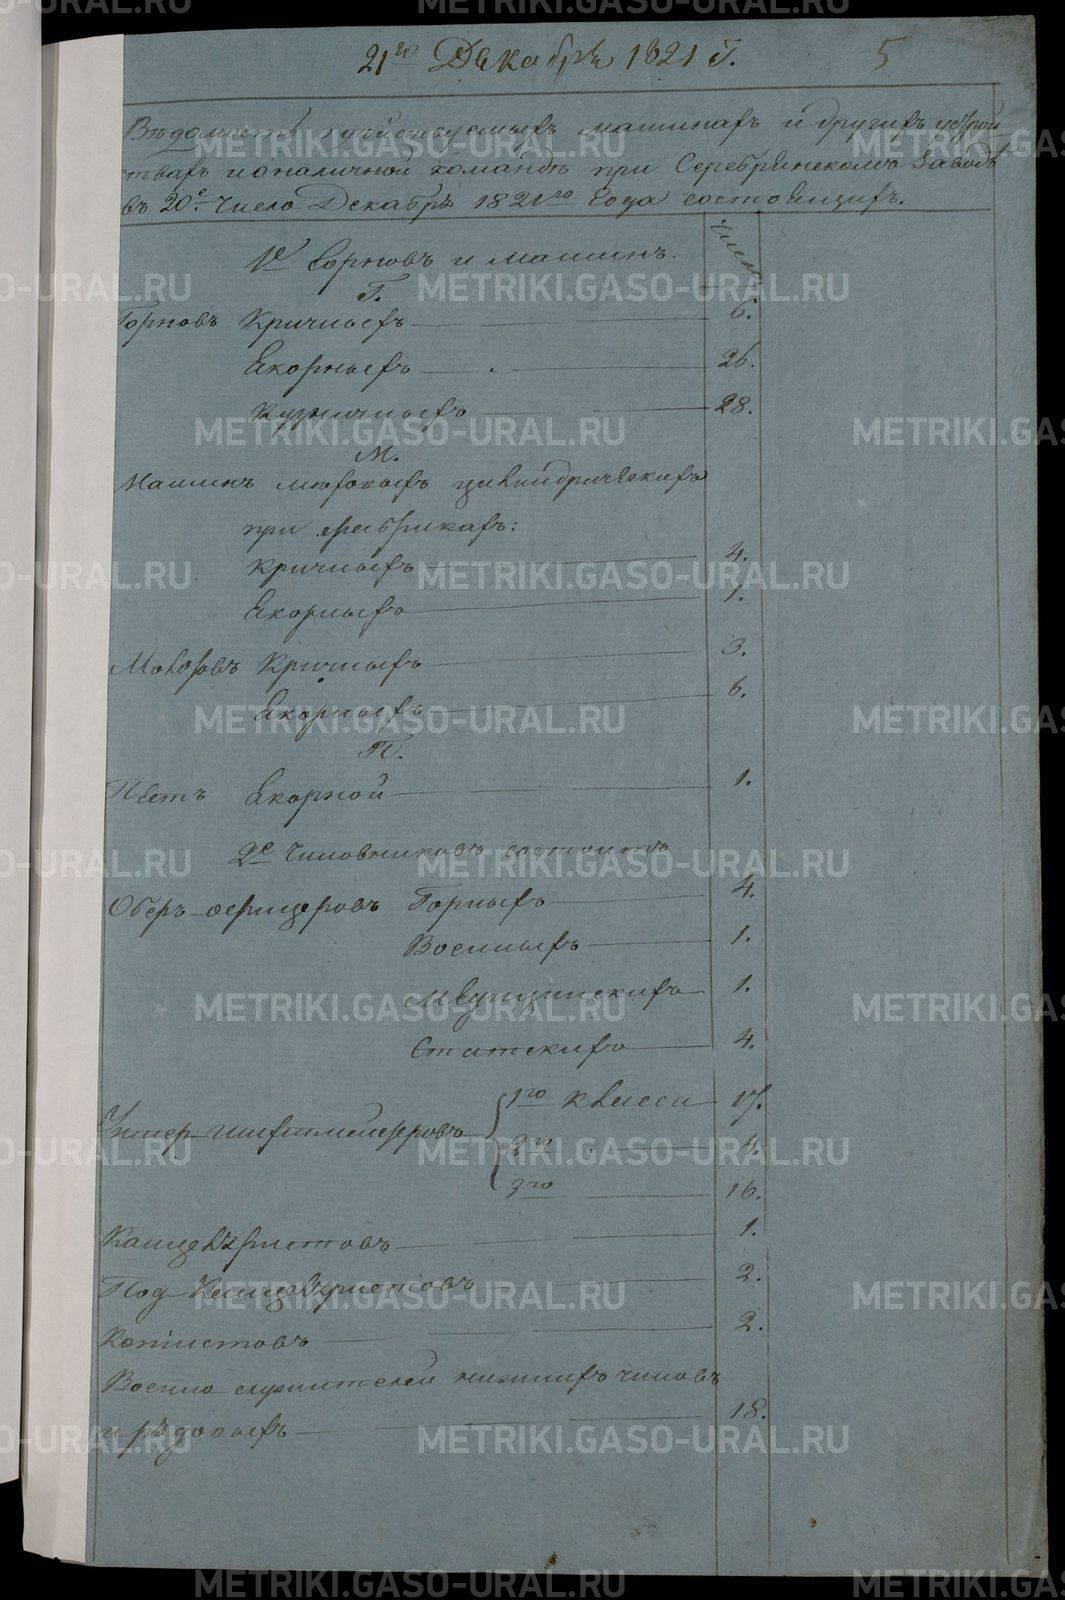 21го Декабря 1821 г.
5
Ведомость о действуемыхъ машинахъ и другихъ устрой
ствахъ и о наличной команде при Серебрянскомъ Заводе
въ 20е число Декабря 1821го Года состоящихъ.
число
1е Горновъ и машинъ.
Г.
Горновъ Кричныхъ 6.
Якорныхъ 26.
Кузничныхъ 28.
М.
Машинъ меховыхъ цилиндрическихъ
при фабрикахъ:
Кричныхъ 4.
Якорныхъ 1.
Молотовъ Кричныхъ 3.
Якорныхъ 6.
П.
Якорной 1.
2е Чиновниковъ состоитъ
Оберъ-офицеровъ Горныхъ 4.
Военныхъ 1.
Медицинскихъ 1.
Статскихъ 4.
1го класса 17.
Унтер-шихтмейстеровъ 2го 4.
3го 16.
Канцеляристовъ 1.
Под-Канцеляристовъ 2.
Копiистовъ 2.
Военно-служителей нижнихъ чиновъ
и рядовыхъ 18.
METRIKI.GASO-URAL.RU